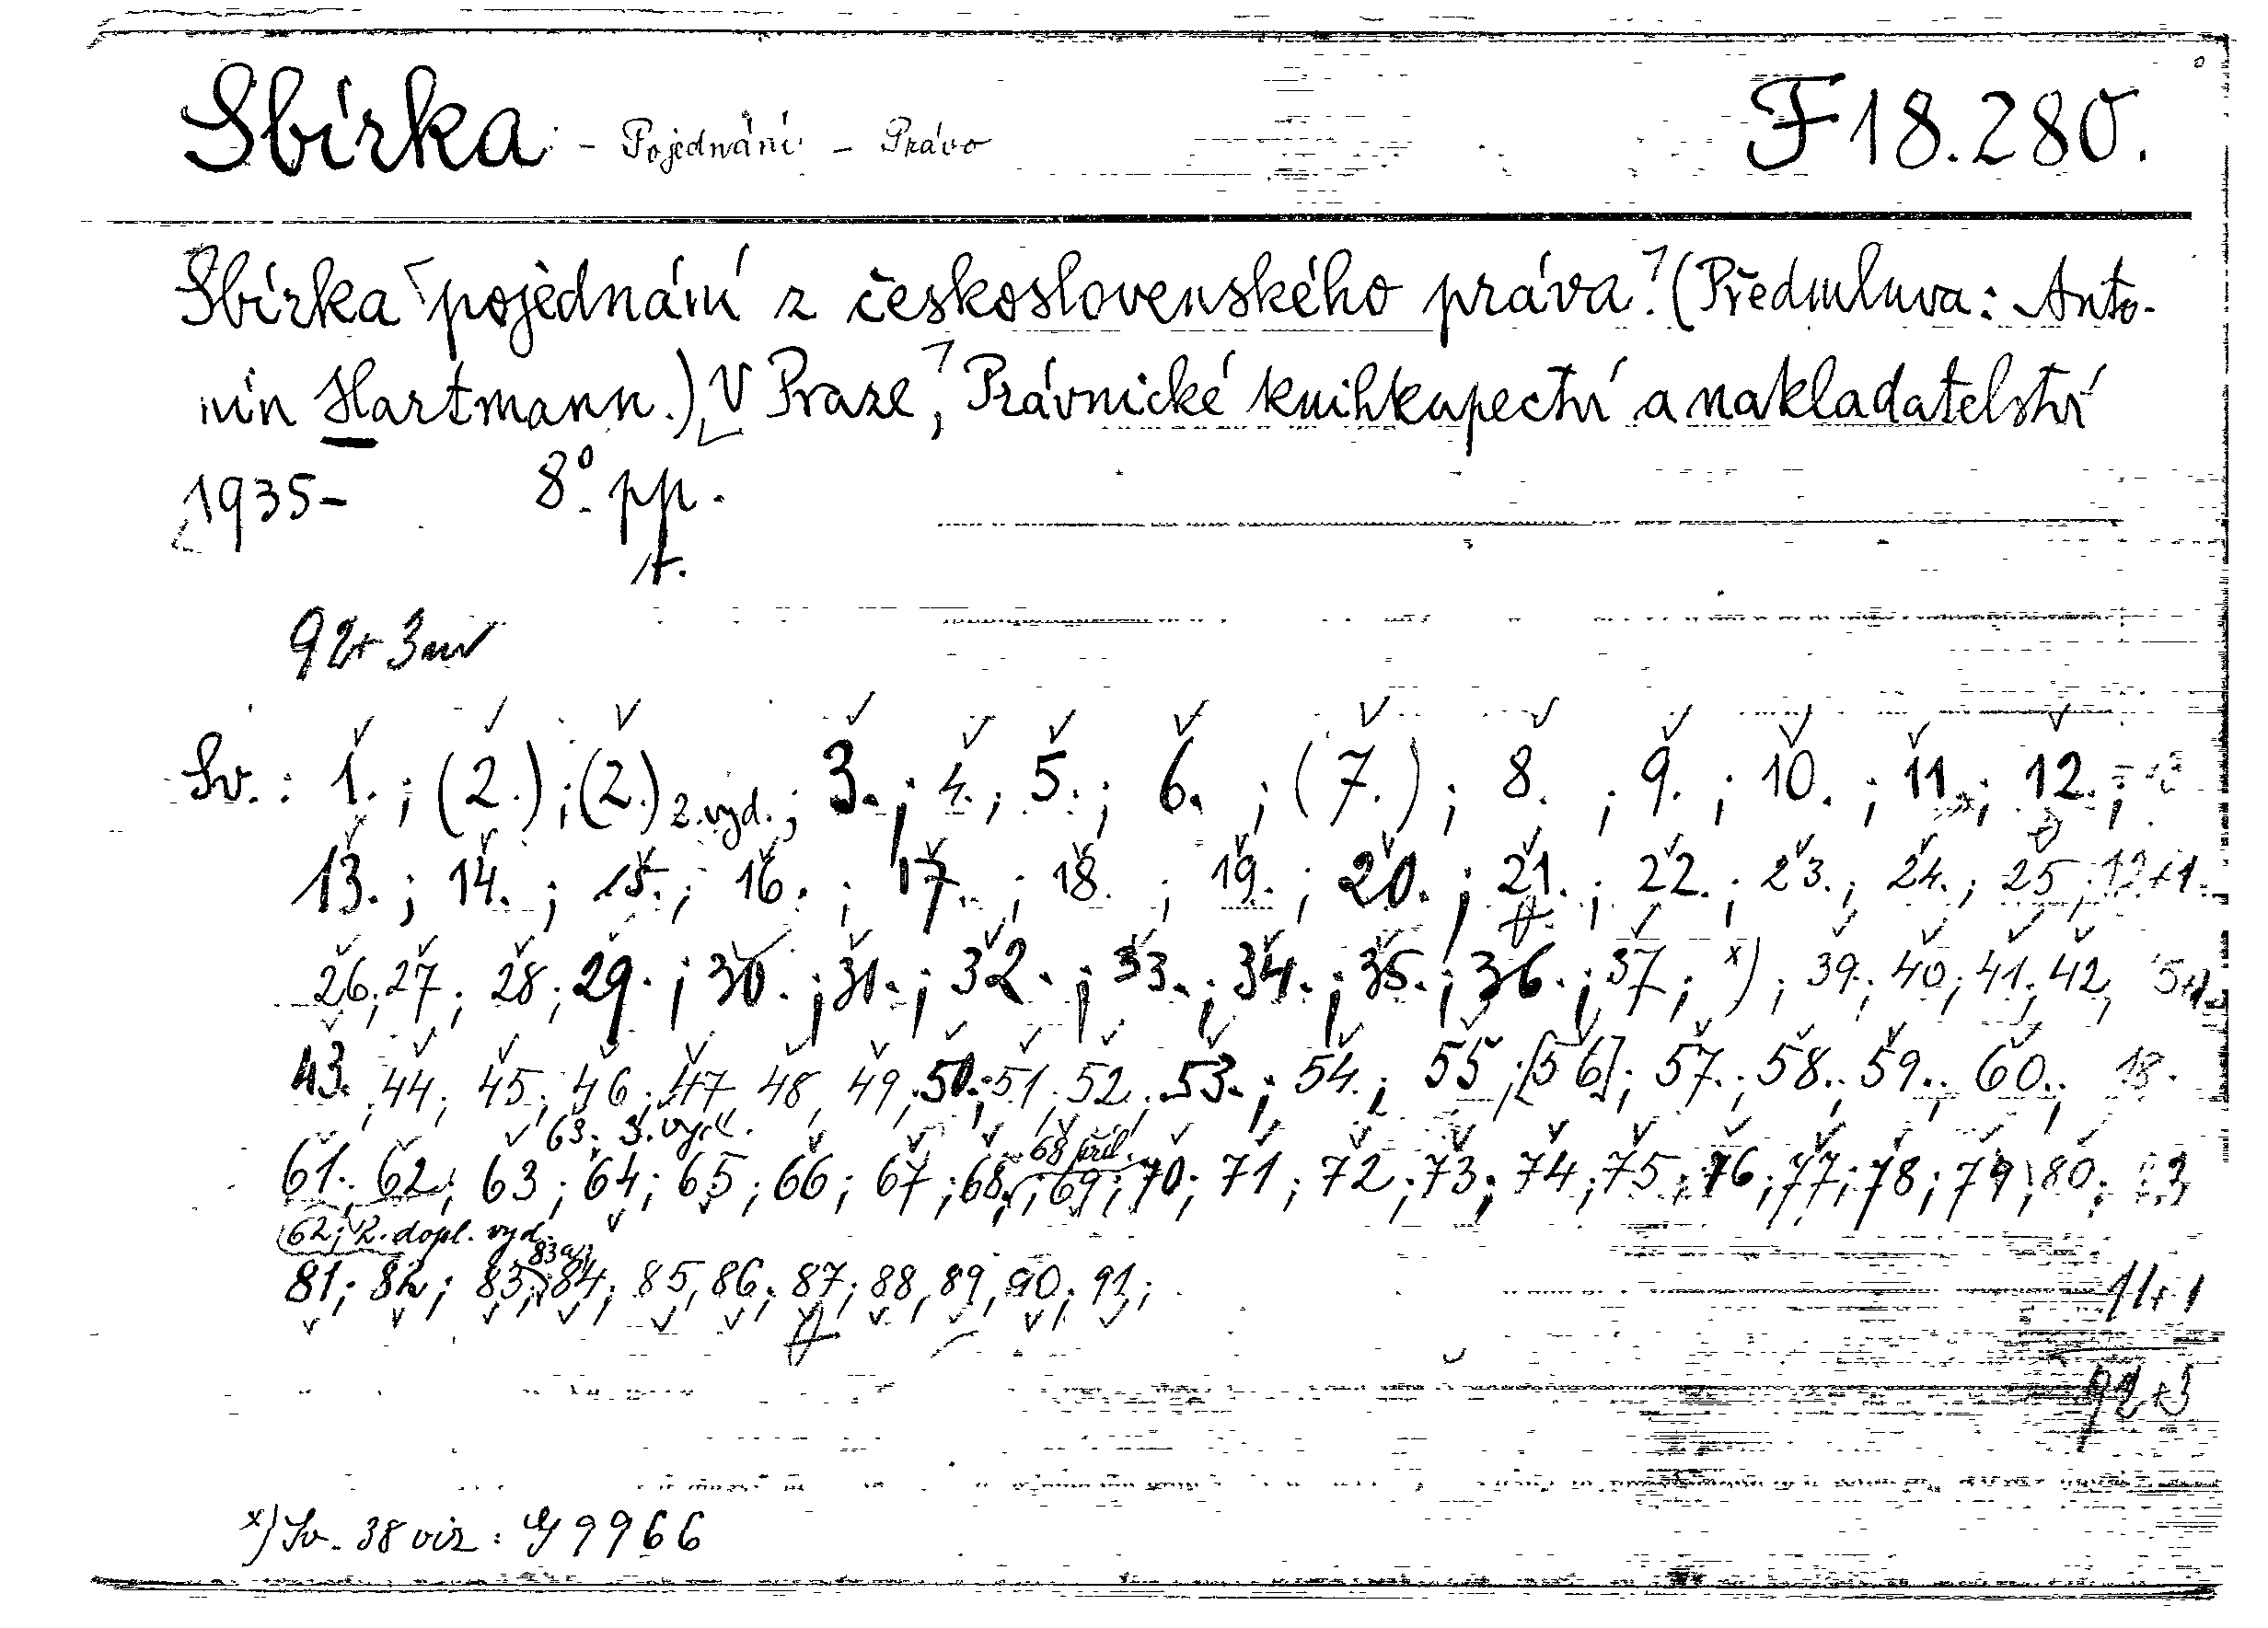 Sbírka - Pojednání - Právo F 18.280.
Sbírka pojednání z československého práva. (Předmluva: Anto-
nín Hartmann.) V Praze, Právnické knihkupectví a nakladatelství
1935- 8° pp.
92+3
Sv.: 1.; (2.); (2.) 2.vyd.; 3.; 4.; 5.; 6.; (7.); 8.; 9.; 10.; 11.; 12.;
13.; 14.; 15.; 16.; 17.; 18.; 19.; 20.; 21.; 22.; 23.; 24.; 25; 12+1.
26; 27; 28; 29.; 30.; 31.; 32.; 33.; 34.; 35.; 36.; 37; x); 39; 40; 41; 42,
43. 44; 45; 46; 47 48, 49, 50.; 51, 52, 53.; 54.; 55; [56]; 57.; 58.; 59.; 60.; 18.
63; 3. vyd. 68 příl.
61.; 62; 63; 64; 65; 66; 67; 68; 69; 70; 71; 72; 73; 74; 75; 76; 77; 78; 79; 80;
62; 2. dopl. vyd. 83a;
81; 82; 83; 84; 85, 86; 87; 88, 89, 90; 91; 11+1
92+3
x) Sv. 38 viz: G 9966